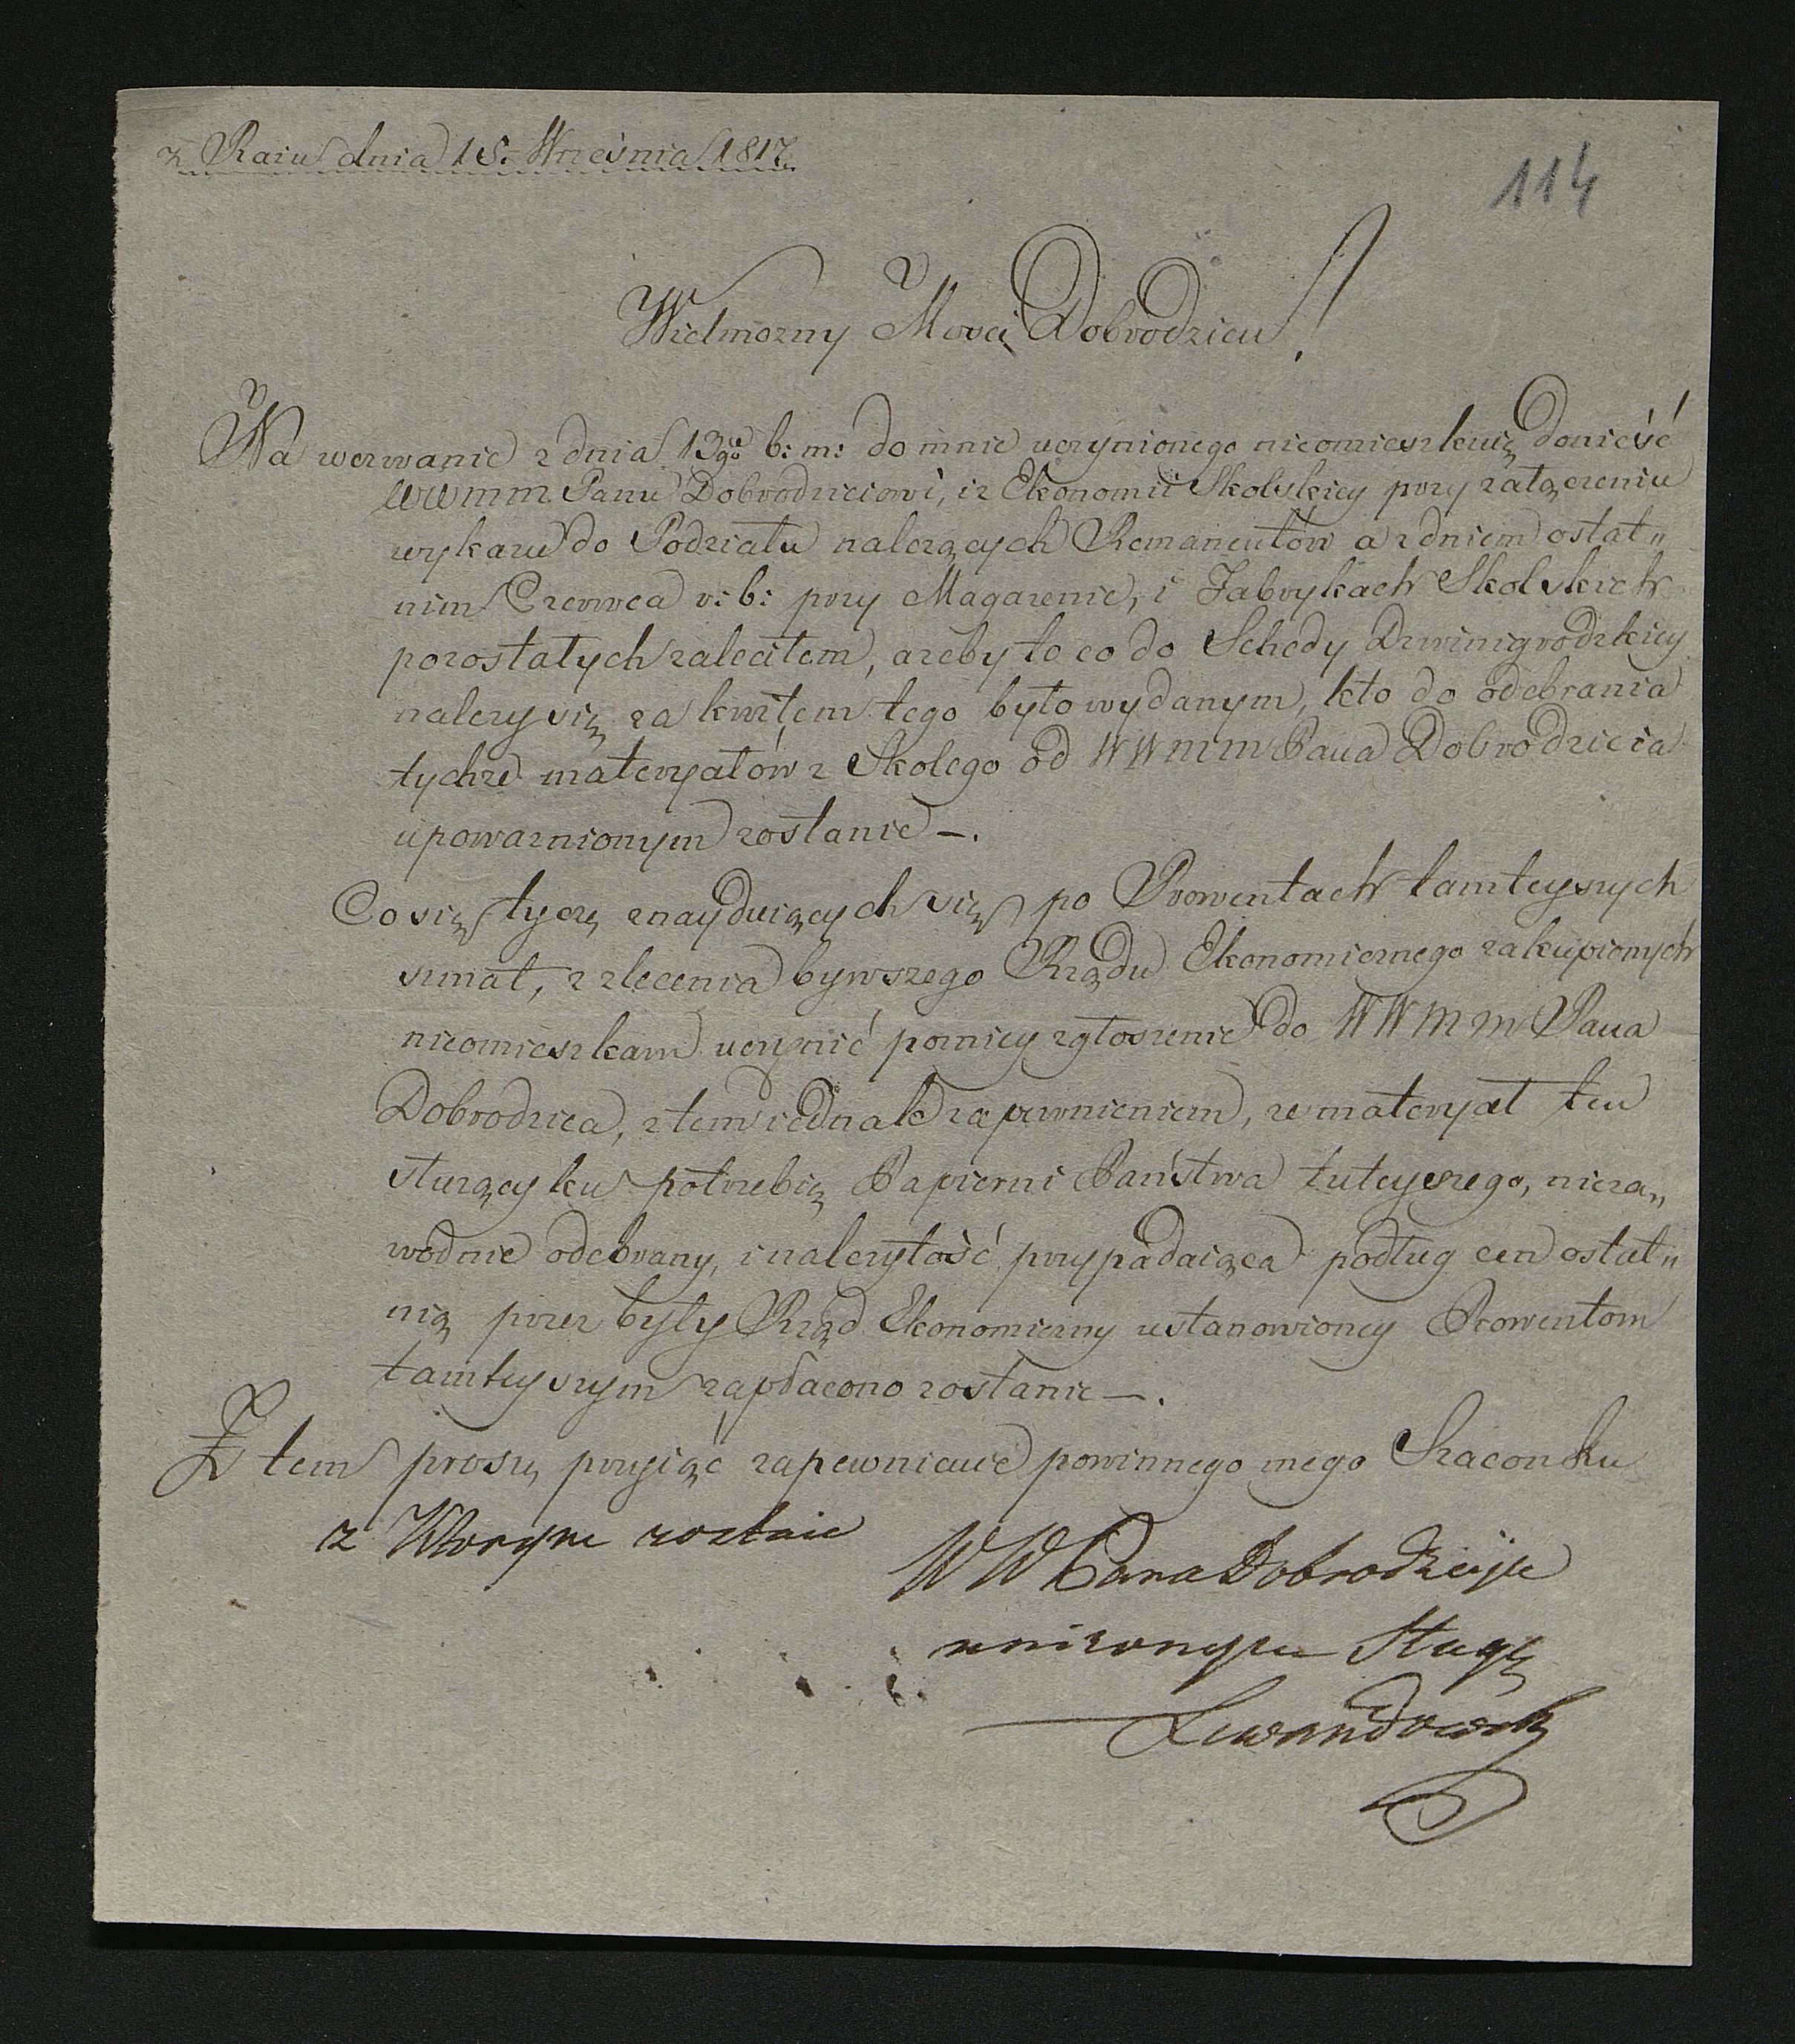 z Raiu dnia 15. Września 1817.
114
Wielmożny Mości Dobrodzieu!
Na wezwanie z dnia 13go b: m: do mnie uczynionego nieomieszkuię donieść
WWMM Panu Dobrodzieiowi, iż Ekonomii Skolskiey przy załączeniu
wykazu do Podziału należących Remanentów a z dniem ostat„
nim Czerwca r: b: przy Magazenie, i Fabrykach Skolskich
pozostałych zaleciłem, ażeby to co do Schedy Dzwinigrodzkiey
należy się za kwitem tego było wydanym, kto do odebrania
tychże materyałów z Skolego od WWMM Pana Dobrodzieia
upoważnionym zostanie —.
Co się tycze znayduiących się po Prowentach tamteyszych
szmat, z zlecenia bywszego Rządu Ekonomicznego zakupionych
nieomieszkam uczynić pozniey zgłoszenie do WWMM Pana
Dobrodziea, z tem iednak zapewnieniem, że materyał ten
służący ku potrzebie Papierni Państwa tuteyszego, nieza„
wodnie odebrany, i należytość przypadaiąca podług cen ostat„
nią przez były Rząd Ekonomiczny ustanowioney Prowentom
tamteyszym zapłacono zostanie —.
Z tem proszę przyiąć zapewnienie powinnego mego Szacunku
z Którym zostaie
WW Pana Dobrodzieja
uniżonym Sługą
Lewandowski